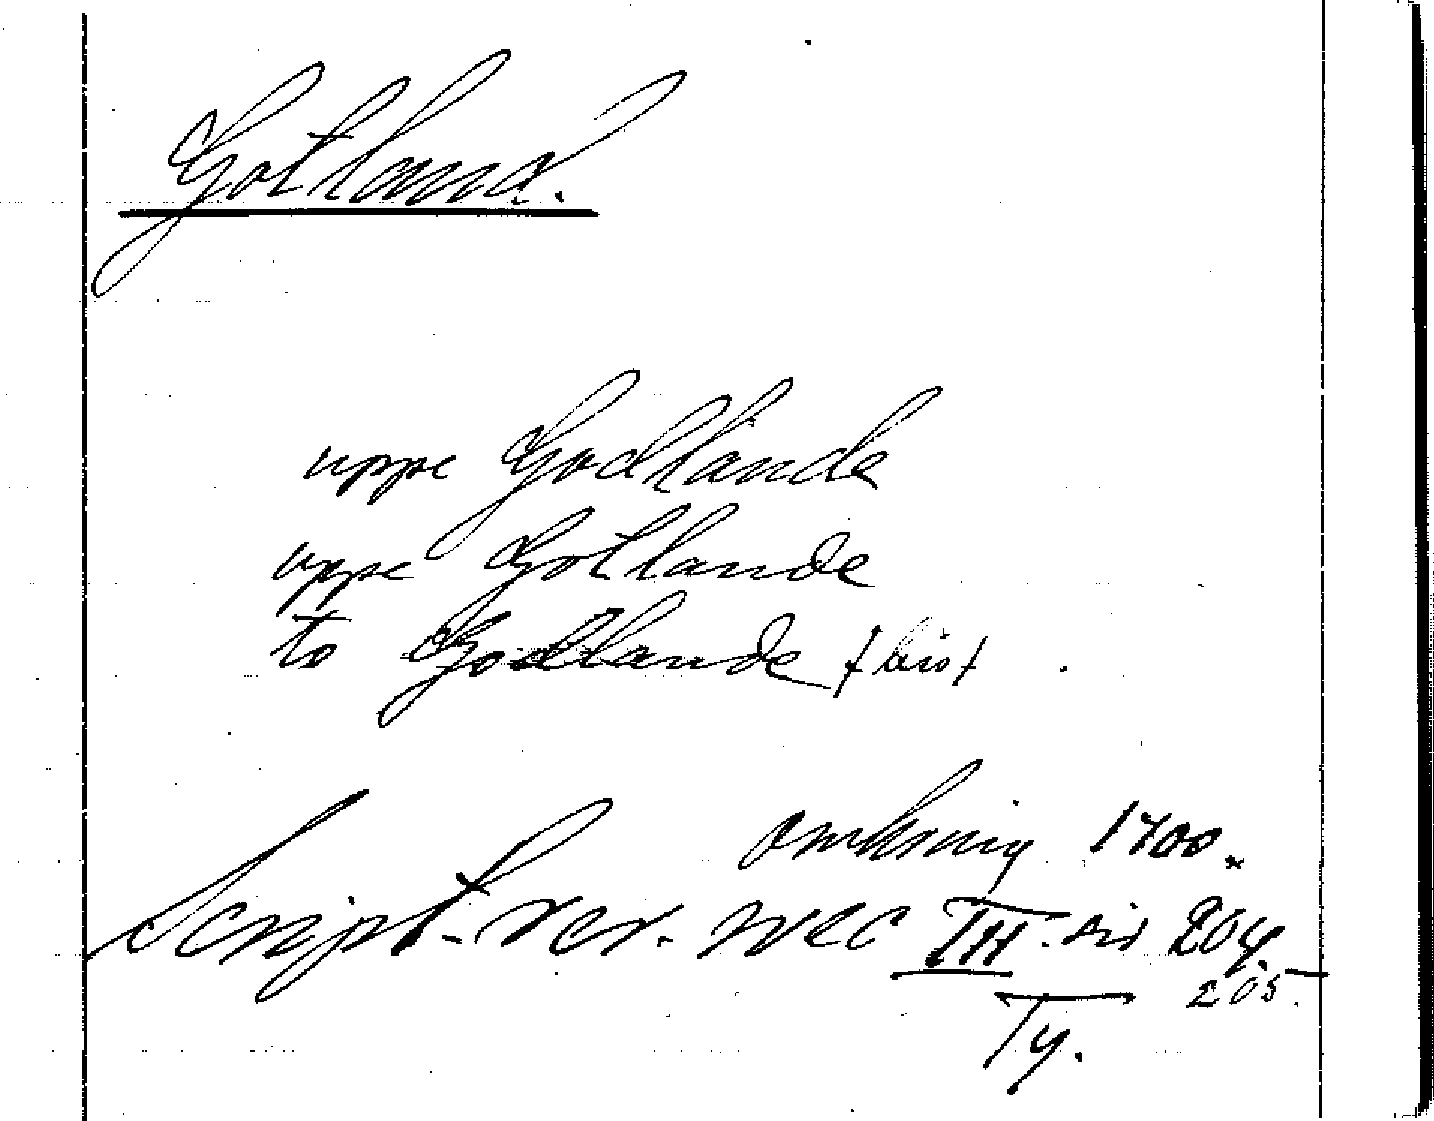 Gotland.
uppe Godlande
uppe Gotlande
to Godlande / bis /
omkring 1400.
Script. rer. svec III. sid 204.
205.
Ty.